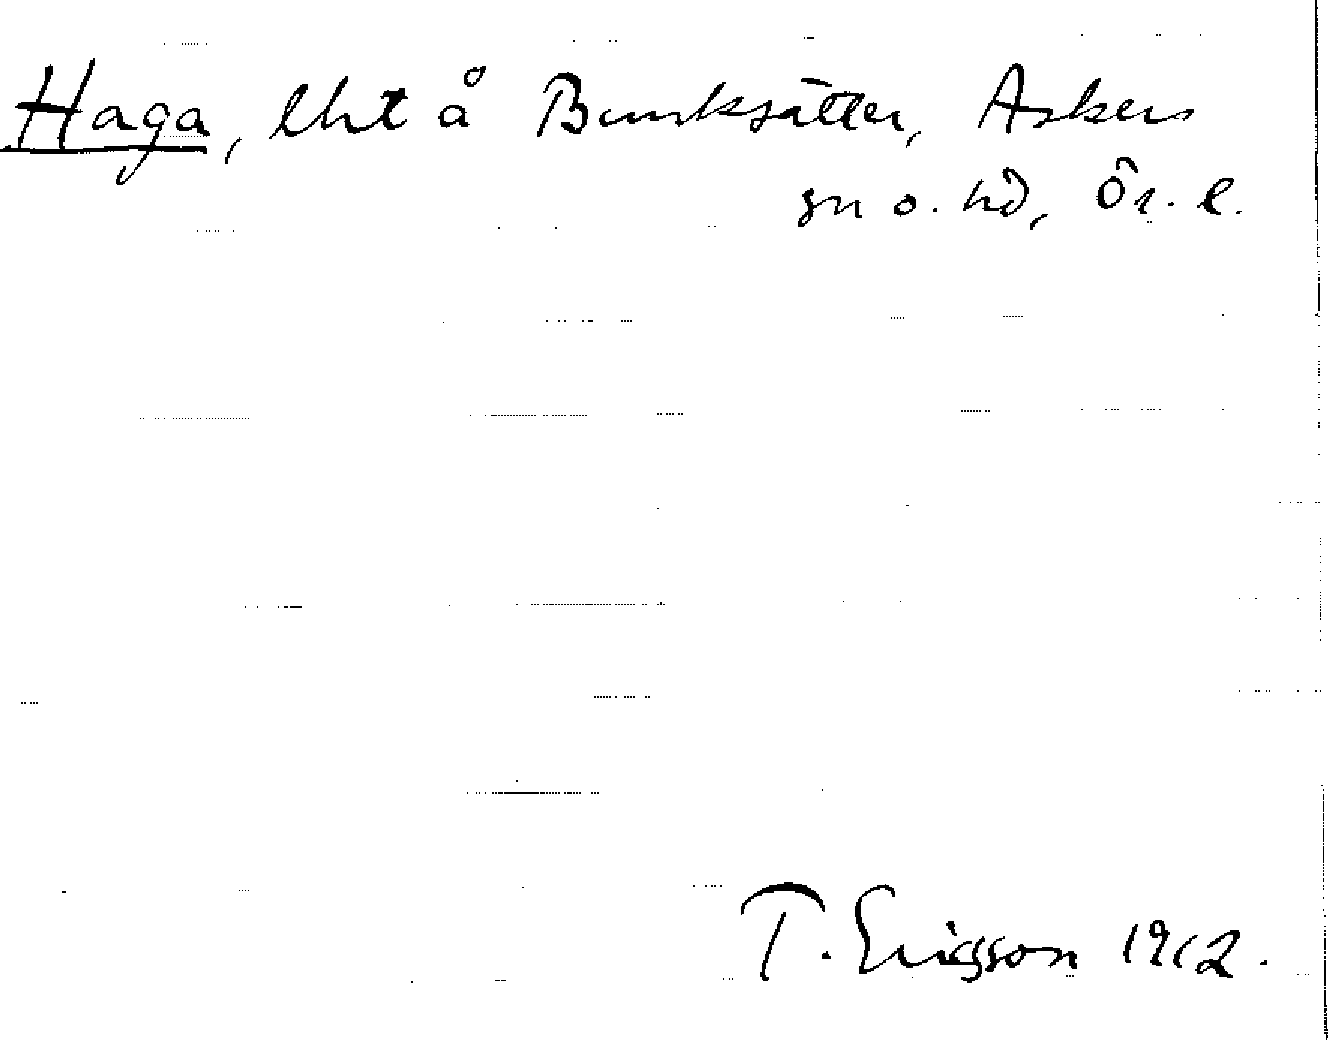 Haga, lht å Bunksätter, Askers
sn o. hd, Ör. l.
T. Ericsson 1912.